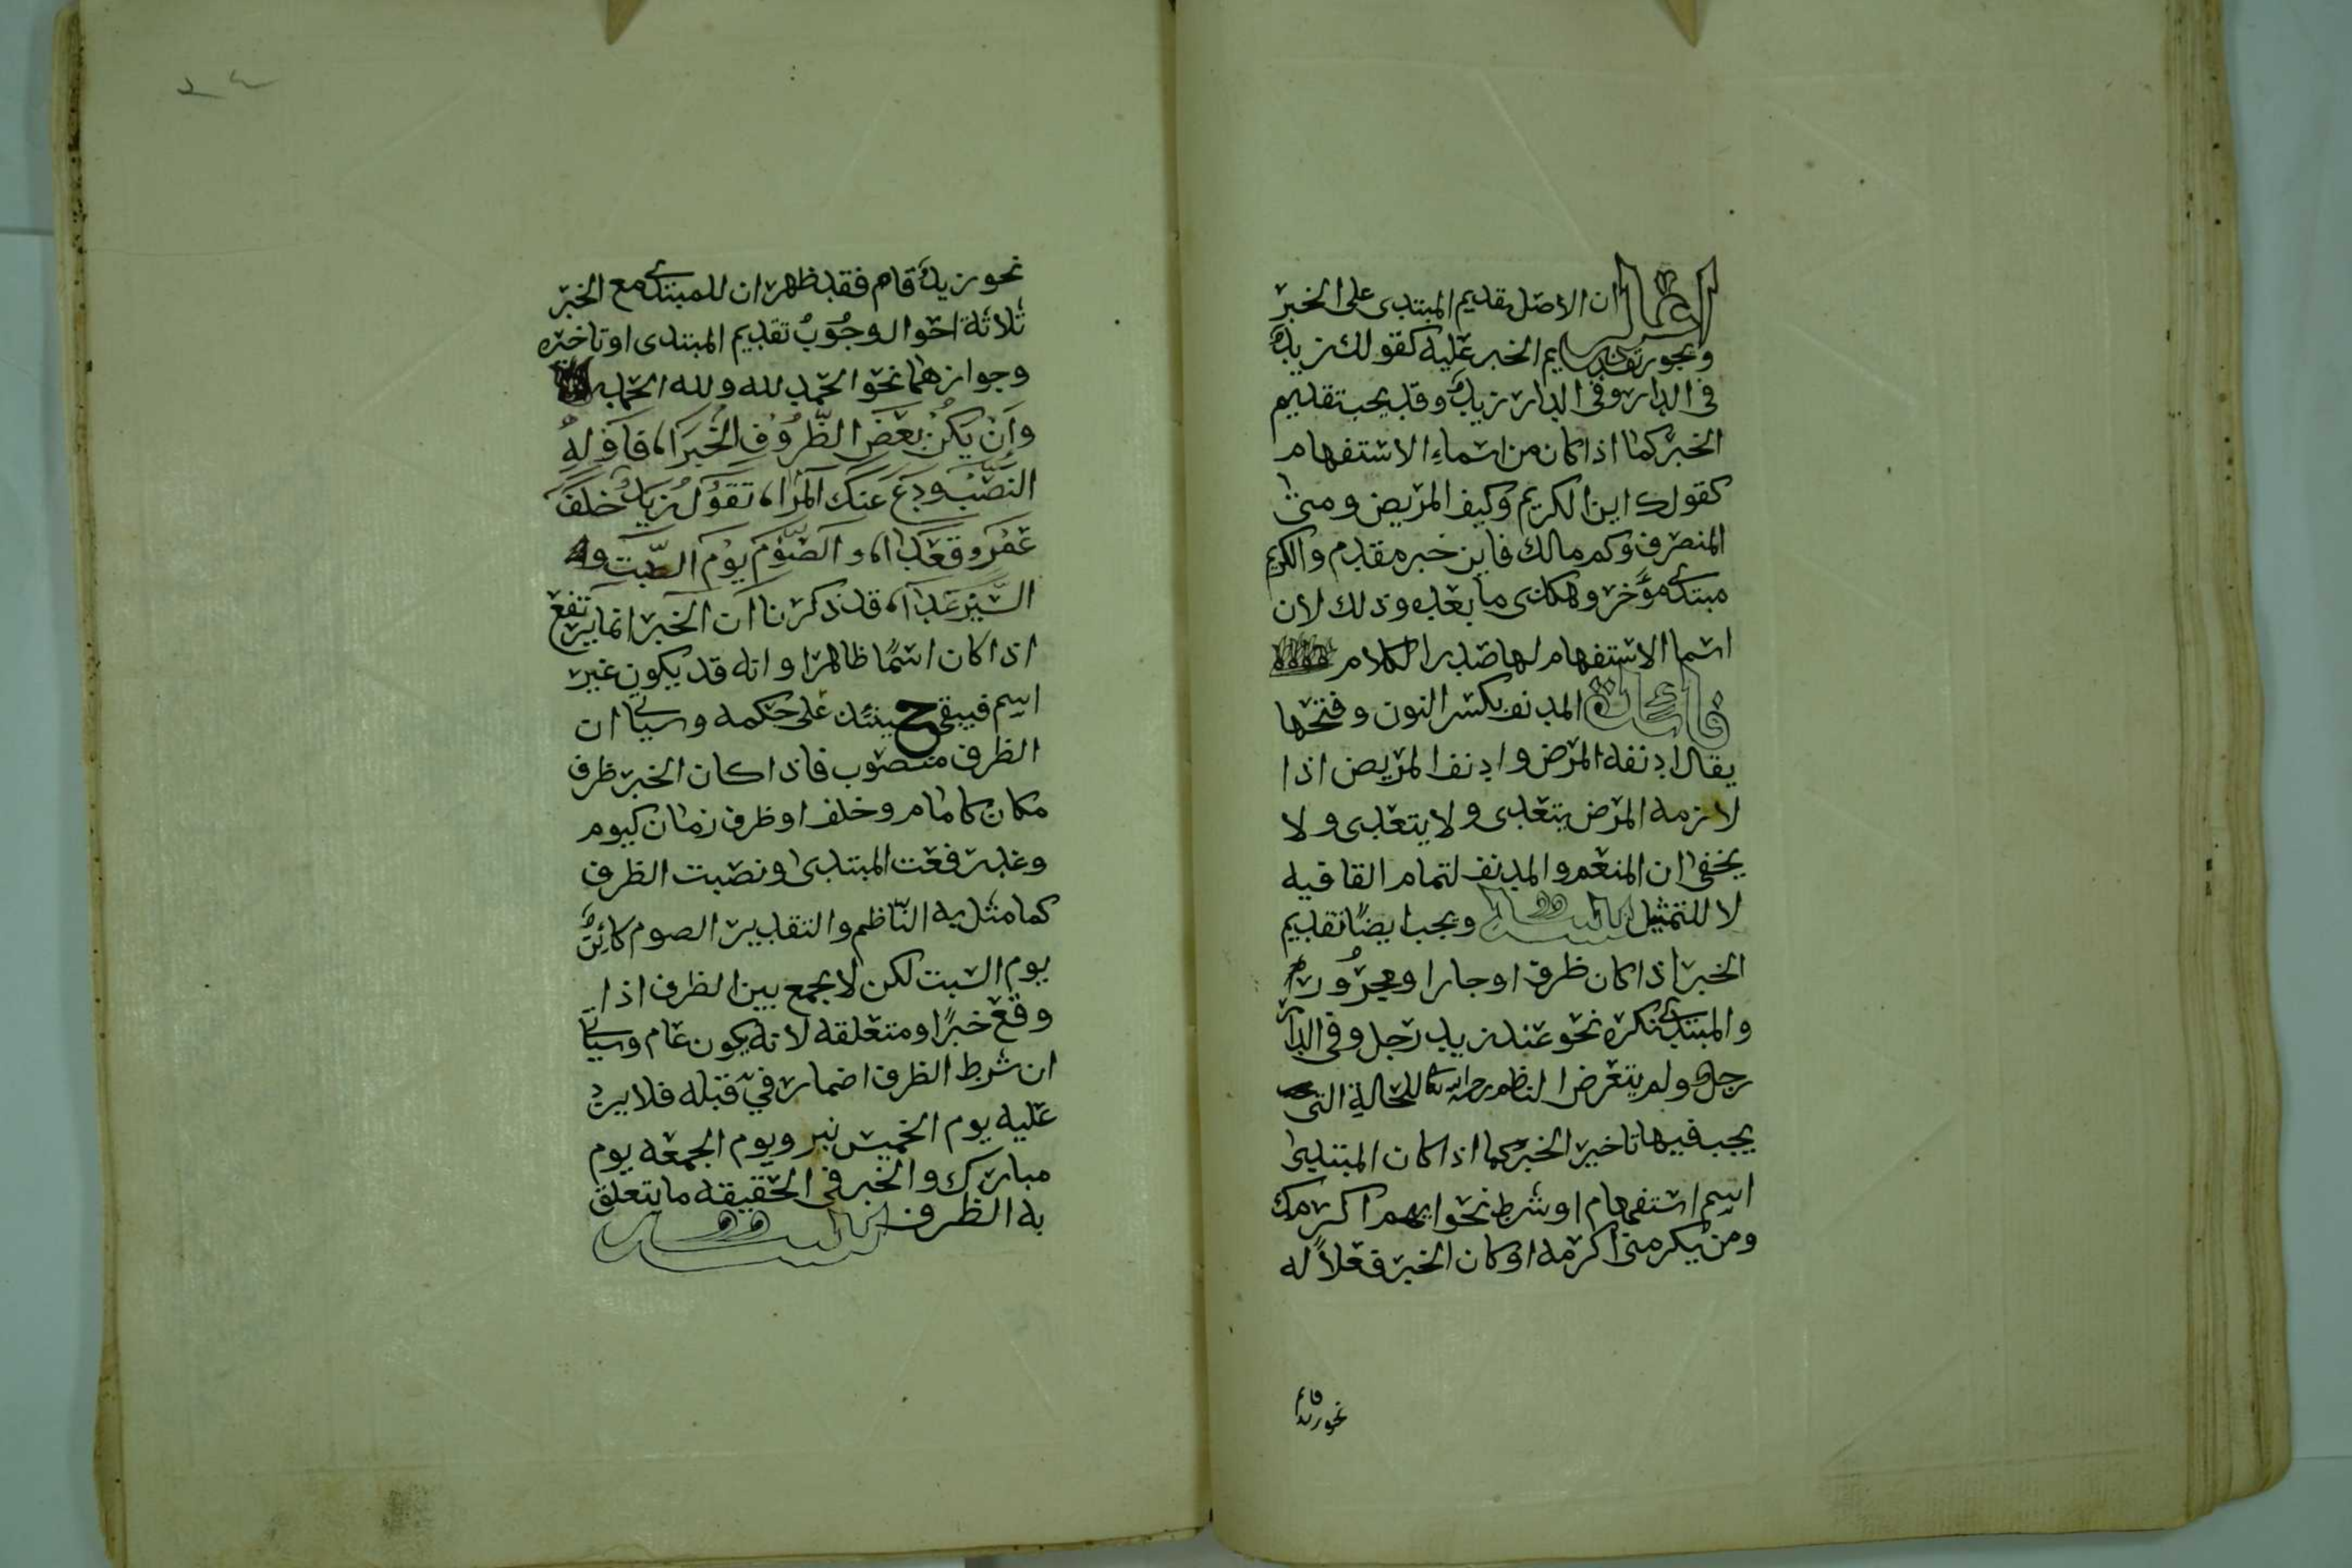 اعلم ان الاصل تقديم المبتدى على الخبر
ويجوز تقديم الخبر عليه كقولك زيدٌ
فى الدار وفى الدار زيدٌ وقد يجب تقديم
الخبر كما اذا كان من اسماءِ الاستفهام
كقولك اين الكريم وكيف المريض ومتى
المنصرف وكم مالك فاين خبر مقدم والكريم
مبتدئ مؤخر وهكذى ما بعده وذلك لان
اسما الاستفهام لها صدر الكلام
فائدة المدنف بكسر النون وفتحها
يقال ادنفه المرض وادنف المريض اذا
لازمه المرض يتعدى ولا يتعدى ولا
يخفى ان المنعم والمدنف لتمام القافيه
لا للتمثيل ويجب ايضًا تقديم
الخبر اذا كان ظرف او جارا ومجرُورا
والمبتدئ نكره نحو عند زيد رجل وفى الدار
رجل ولم يتعرض الناظم رحمه الله للحالة التى
يجب فيها تاخير الخبر كما اذا كان المبتدى
اسم استفهام او شرط نحو ايهم اكرمك
ومن يكرمنى اكرمه او كان الخبر فعلاً له
نحو زيد قام
نحو زيدٌ قام فقد ظهر ان للمبتدئ مع الخبر
ثلاثة احوال وجُوبُ تقديم المبتدى او تاخيره
وجوازهما نحو الحمد لله ولله الحمد
وَاِنْ يَكُنْ بَعْضَ الظُّرُوفِ الْخَبَرَا، فَاَوْلِهِ
النَّصْبَ وَدَعْ عَنْكَ المِرَا، تَقُوُلُ زَيْدٌ خَلْفَ
عَمْرٍو قَعَدَا، وَالصَّوْمُ يَوْمَ السَّبْتِ و
السَّيْرُ غَدَا، قد ذكرنا ان الخبر انما يرتفع
اذا كان اسمًا ظاهرا وانه قد يكون غير
اسم فيبقى حينئذ على حكمه وسياتى ان
الظرف منصوب فاذا كان الخبر ظرف
مكان كامام وخلف او ظرف زمان كيوم
وغد رفعت المبتدى ونصبت الظرف
كما مثل به النّاظم والتقدير الصوم كائِنٌ
يوم السبت لكن لا يجمع بين الظرف اذا
وقع خبرًا ومتعلقه لانه يكون عام وسياتى
ان شرط الظرف اضمار فيْ قبله فلا يرد
عليه يوم الخميس نير ويوم الجمعه يوم
مبارك والخبر فى الحقيقه ما يتعلق
به الظرف